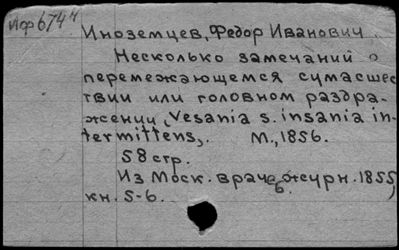 Иф 674"
Иноземцев, Федор Иванович.
Несколько замечаний о
перемежающемся сумасшес
твии или головном раздра-
жении „Vesania s. insania in-
termittens„. М., 1856.
58 стр.
Из Моск. врачеб. журн. 1855,
кн. 5-6.